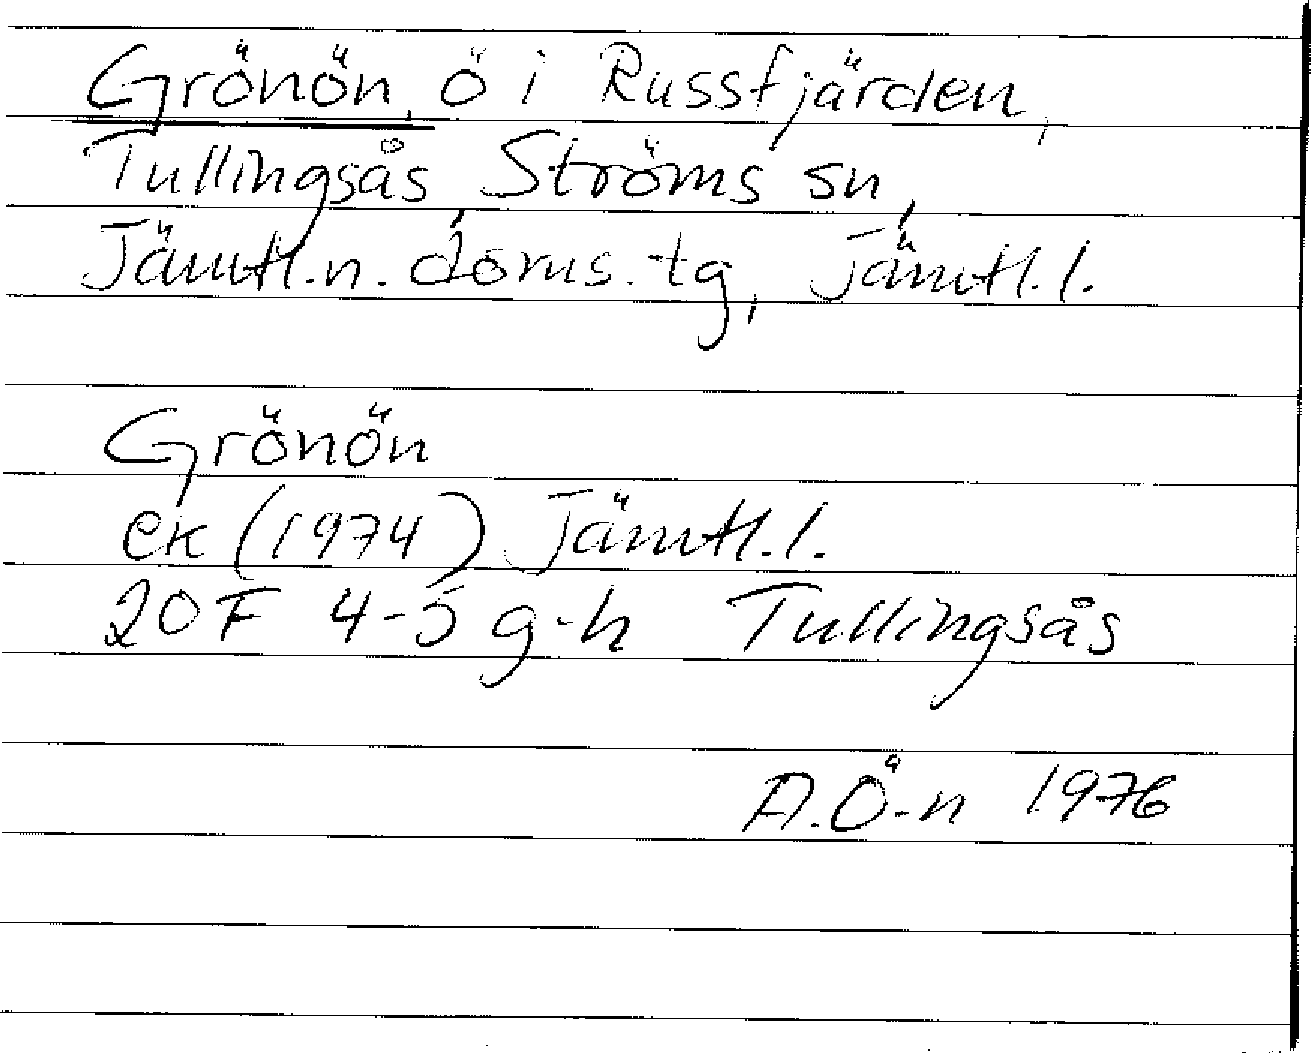 Grönön, ö i Russfjärden,
Tullingsås, Ströms sn,
Jämtl.n. doms.tg, Jämtl.l.
Grönön
ek (1974) Jämtl.l.
20F 4-5 g-h Tullingsås
A.Ö-n 1976